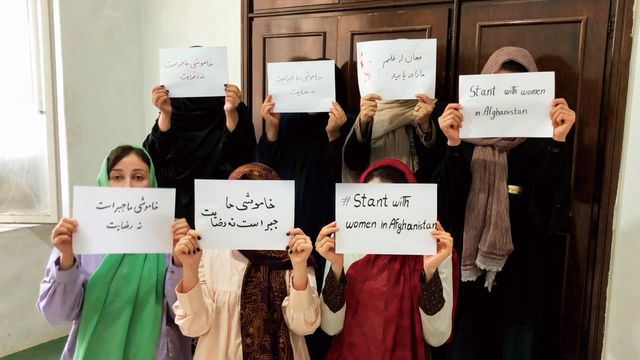 خاموشی ما جبر است
نه رضایت
خاموشی ما جبر است
نه رضایت
فغان از ظلم
ما را دریابید
Stant with women
in Afghanistan
خاموشی ما جبر است
نه رضایت
خاموشی ما
جبر است نه رضایت
# Stant with
women in Afghanistan